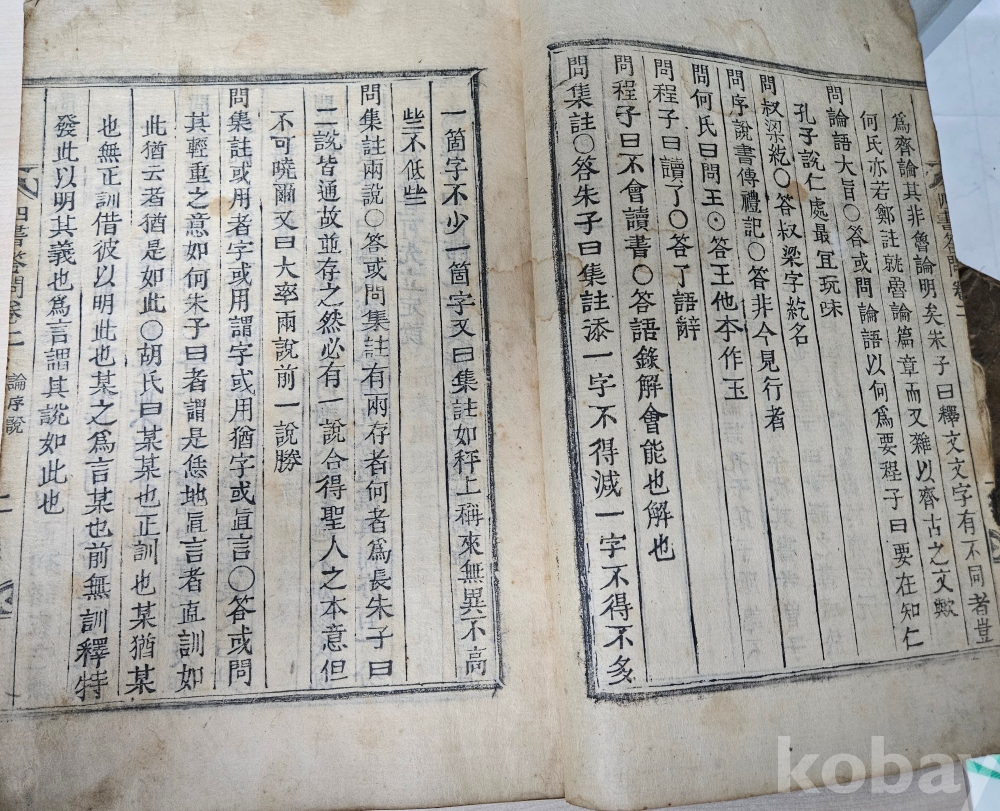 爲齊論其非魯論明矣朱子曰釋文文字有不同者豈
何氏亦若鄭註就魯論篇章而又雜以齊古之文歟
問論語大旨○答或問論語以何爲要程子曰要在知仁
孔子說仁處最宜玩味
問叔梁紇○答叔梁字紇名
問序說書傳禮記○答非今見行者
問何氏曰問王○答王他本作玉
問程子曰讀了○答了語辭
問程子曰不會讀書○答語錄解會能也解也
問集註○答朱子曰集註添一字不得減一字不得不多
一箇字不少一箇字又曰集註如秤上稱來無異不高
些不低些
問集註兩說○答或問集註有兩存者何者爲長朱子曰
二說皆通故並存之然必有一說合得聖人之本意但
不可曉爾又曰大率兩說前一說勝
問集註或用者字或用謂字或用猶字或直言○答或問
其輕重之意如何朱子曰者謂是恁地直言者直訓如
此猶云者猶是如此○胡氏曰某某也正訓也某猶某
也無正訓借彼以明此也某之爲言某也前無訓釋特
發此以明其義也爲言謂其說如此也
四書答問卷之二 論序說
四書答問卷之二
kobay